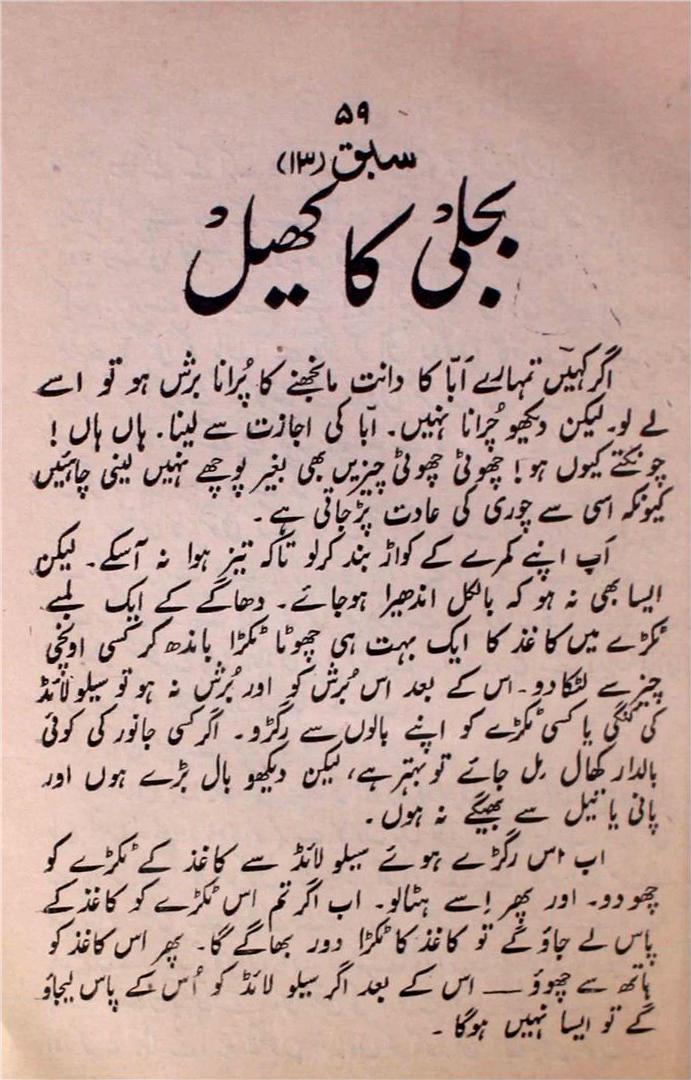 ۵۹
سبق (۱۳)
بجلی کا کھیل
اگر کہیں تمہارے اَبّا کا دانت مانجھنے کا پُرانا برش ہو تو اسے
لے لو۔ لیکن دیکھو چُرانا نہیں۔ ابّا کی اجازت سے لینا۔ ہاں ہاں !
چونکتے کیوں ہو! چھوٹی چھوٹی چیزیں بھی بغیر پوچھے نہیں لینی چاہئیں
کیونکہ اسی سے چوری کی عادت پڑجاتی ہے۔
آپ اپنے کمرے کے کواڑ بند کرلو تاکہ تیز ہوا نہ آسکے۔ لیکن
ایسا بھی نہ ہو کہ بالکل اندھیرا ہوجائے۔ دھاگے کے ایک لمبے
ٹکڑے میں کاغذ کا ایک بہت ہی چھوٹا ٹکڑا باندھ کر کسی اونچی
چیز سے لٹکا دو۔ اس کے بعد اس بُرش کو اور بُرش نہ ہو تو سیلولائڈ
کی کنگی یا کسی ٹکڑے کو اپنے بالوں سے رگڑو۔ اگر کسی جانور کی کوئی
بالدار کھال مل جائے تو بہتر ہے، لیکن دیکھو بال بڑے ہوں اور
پانی یا تیل سے بھیگے نہ ہوں۔
اب اس رگڑے ہوئے سیلو لائڈ سے کاغذ کے ٹکڑے کو
چھو دو۔ اور پھر اِسے ہٹالو۔ اب اگر تم اس ٹکڑے کو کاغذ کے
پاس لے جاؤ گے تو کاغذ کا ٹکڑا دور بھاگے گا۔ پھر اس کاغذ کو
ہاتھ سے چھوؤ — اس کے بعد اگر سیلو لائڈ کو اُس کے پاس لیجاؤ
گے تو ایسا نہیں ہوگا۔